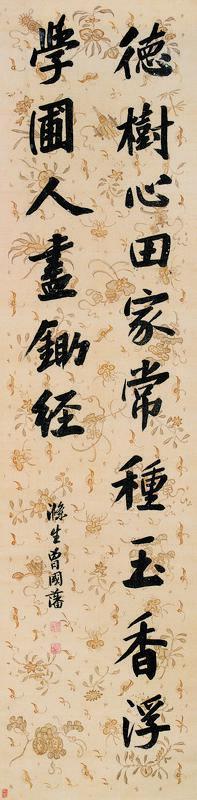 德樹心田家常種玉香浮
學圃人盡鋤经
滌生曾國藩